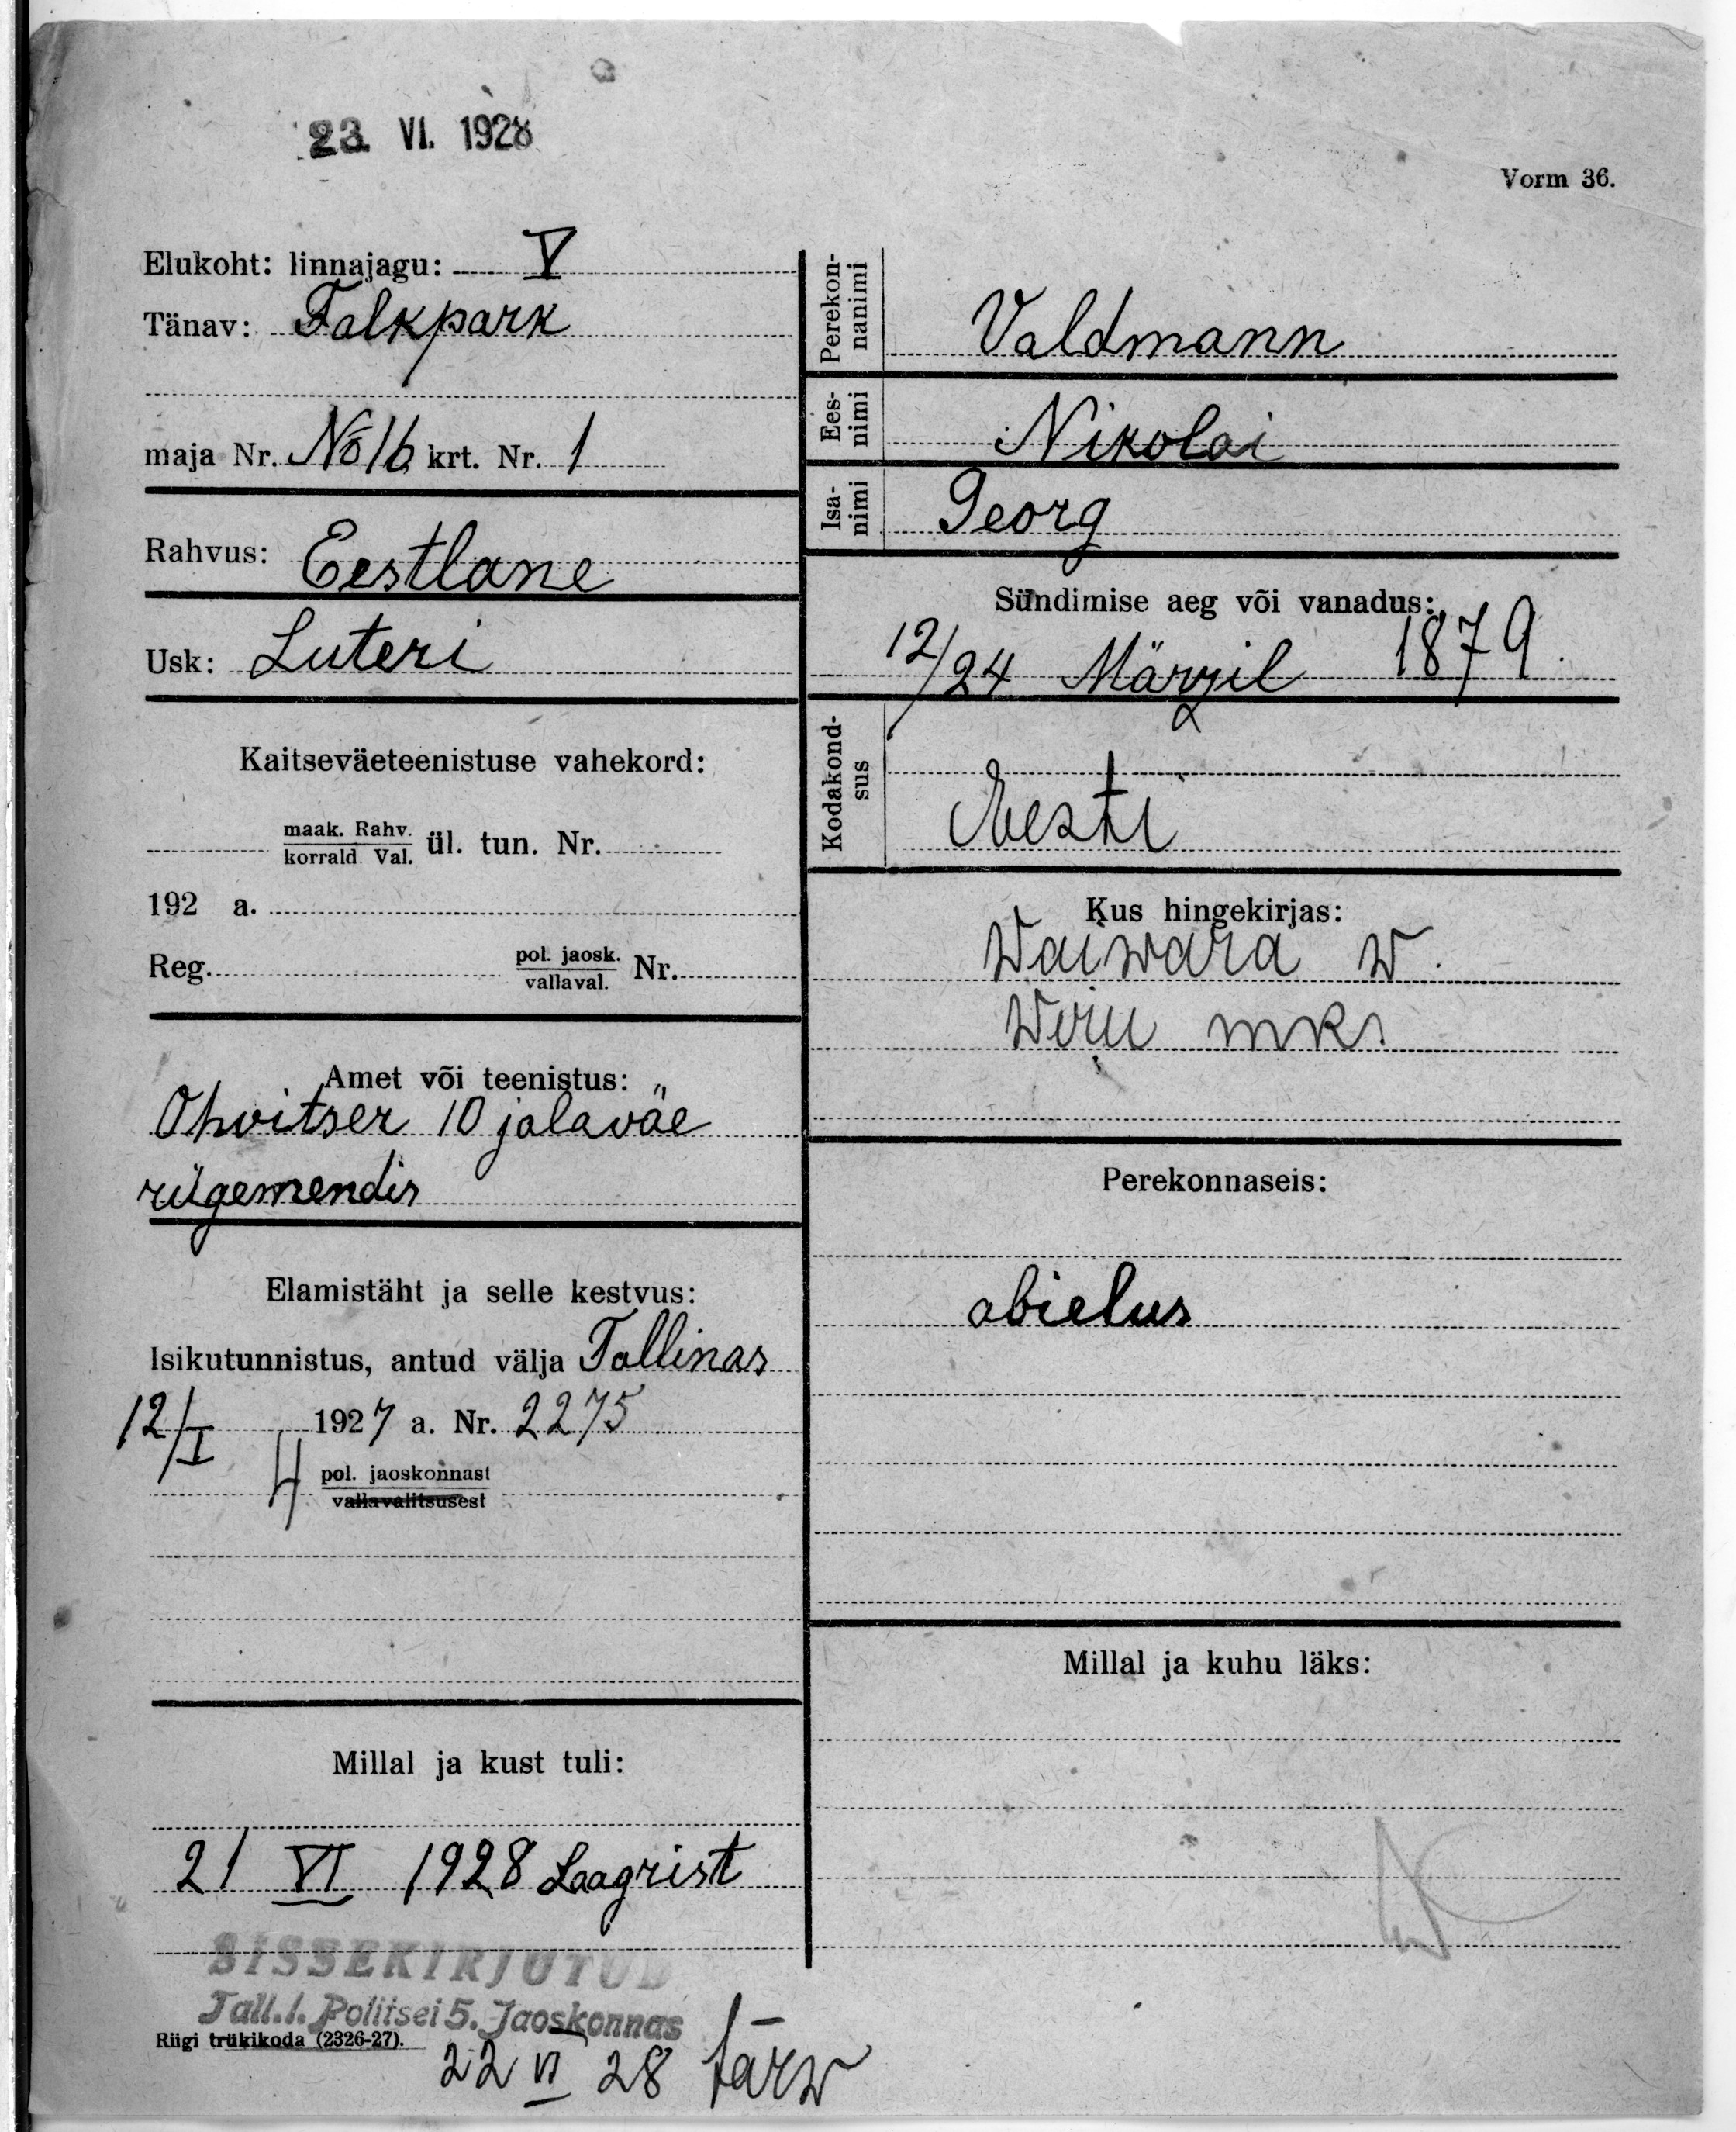 23. VI. 1928
Vorm 36.
Elukoht: linnajagu: V
Tänav: Falkpark
maja Nr. No 16 krt. Nr. 1
Rahvus: Eestlane
Usk: Luteri
Kaitseväeteenistuse vahekord:
maak. Rahv.
korrald. Val. ül. tun. Nr.
192 a.
Reg. pol. jaosk.
vallaval. Nr.
Amet või teenistus:
Ohvitser 10 jalaväe
rügemendis
Elamistäht ja selle kestvus:
Isikutunnistus, antud välja Tallinas
12/I 1927 a. Nr. 2275
4 pol. jaoskonnast
vallavalitsusest
Millal ja kust tuli:
21 VI 1928 Laagrist
SISSEKIRJUTUD
Tall. l. Politsei 5. Jaoskonnas
Riigi trükikoda (2326-27).
22 VI 28
Perekon-
nanimi
Valdmann
Ees-
nimi
Nikolai
Isa-
nimi
Georg
Sündimise aeg või vanadus:
12/24 Märzil 1879.
Kodakond-
sus
Eesti
Kus hingekirjas:
Waiwara w.
Wiru mk.
Perekonnaseis:
abielus
Millal ja kuhu läks: